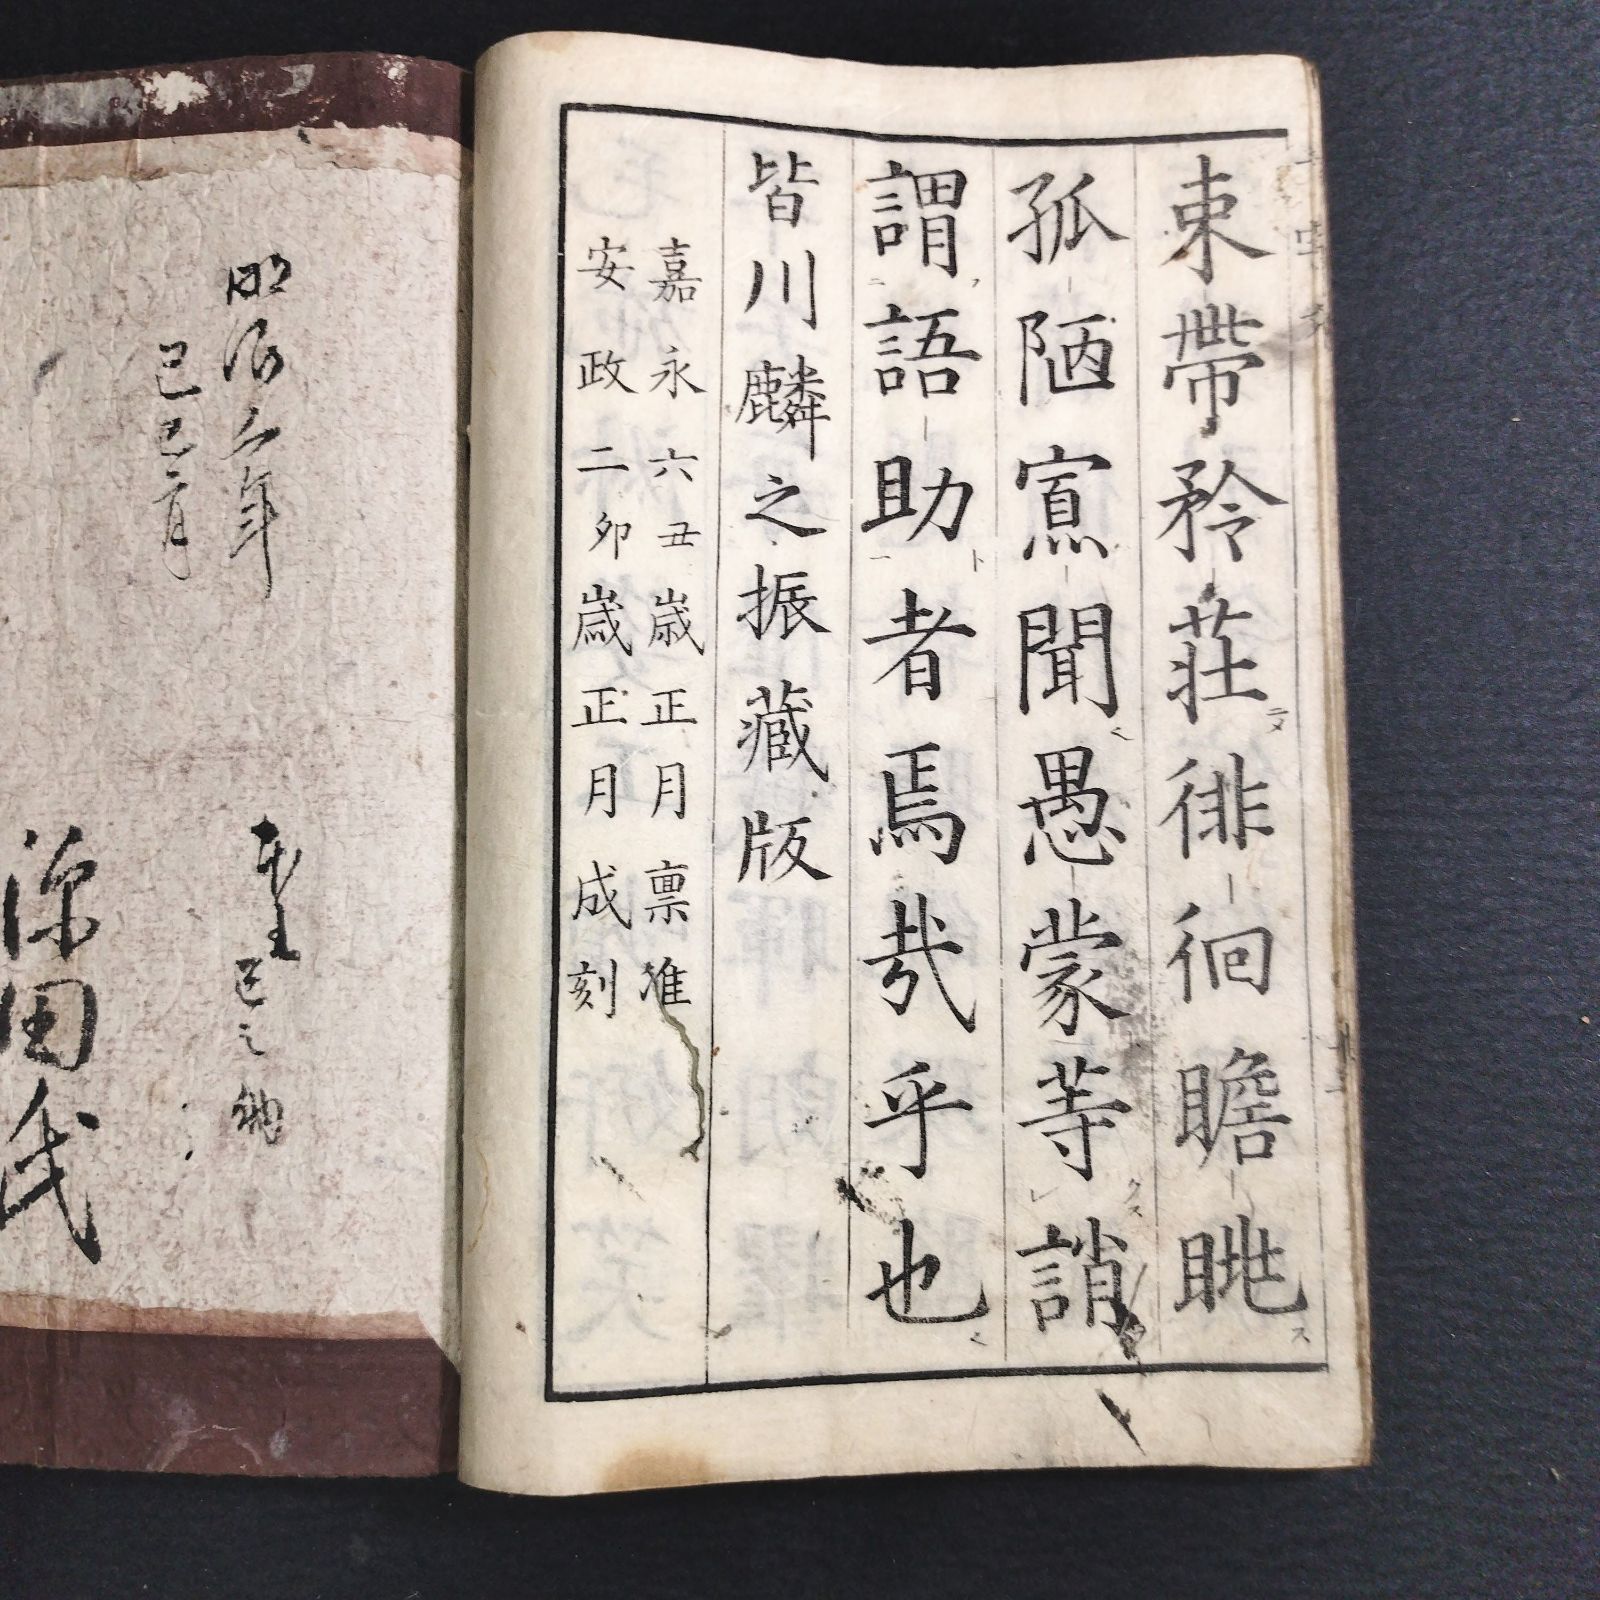 束帶矜莊徘徊瞻眺
孤陋寡聞愚蒙等誚
謂語助者焉哉乎也
皆川麟之振藏版
嘉永六丑歳正月稟准
安政二卯歳正月成刻
明治六年
己巳二月
深田氏